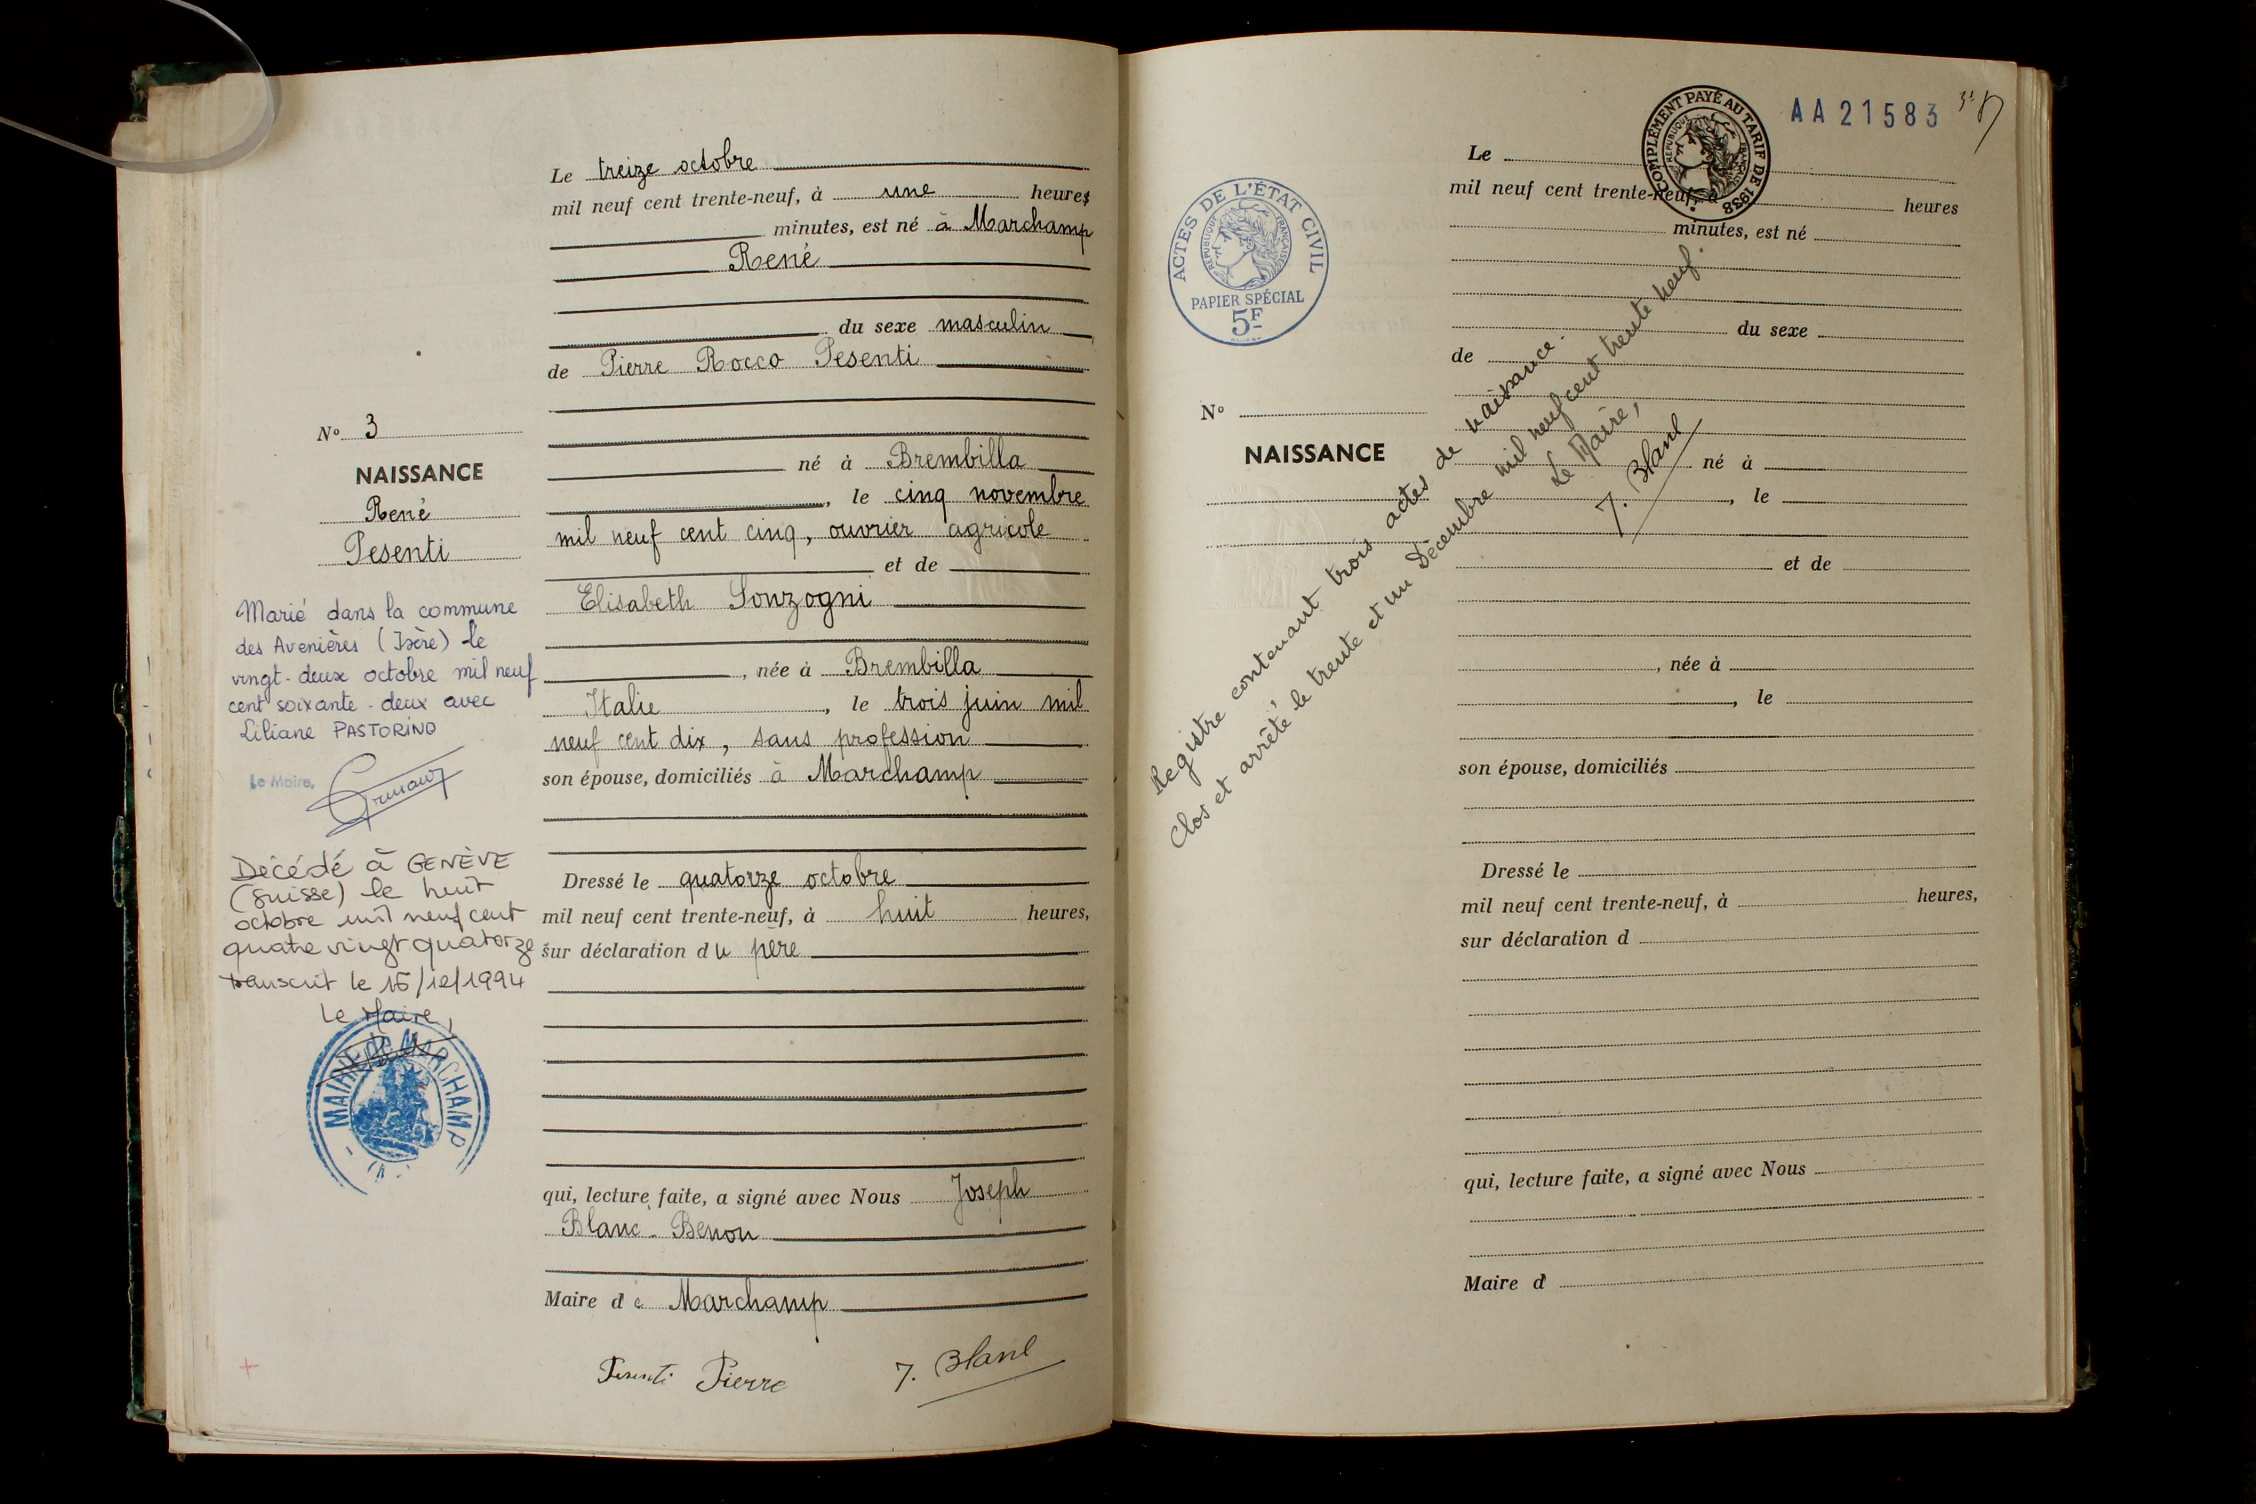 Le treize octobre
mil neuf cent trente-neuf, à une heures
minutes, est né à Marchamp
René
du sexe masculin
de Pierre Rocco Pesenti
né à Brembilla
, le cinq novembre
mil neuf cent cinq, ouvrier agricole
et de
Elisabeth Sonzogni
, née à Brembilla
Italie, le trois juin mil
neuf cent dix, sans profession
son épouse, domiciliés à Marchamp
Dressé le quatorze octobre
mil neuf cent trente-neuf, à huit heures,
sur déclaration du père
qui, lecture faite, a signé avec Nous Joseph
Blanc-Benon
Maire de Marchamp
Pesenti Pierre J. Blanc
No 3
NAISSANCE
René
Pesenti
Marié dans la commune
des Avenières (Isère) le
vingt-deux octobre mil neuf
cent soixante-deux avec
Liliane PASTORINO
Le Maire,
Décédé à GENÈVE
(Suisse) le huit
octobre mil neuf cent
quatre vingt quatorze
transcrit le 15/12/1994
Le Maire,
MAIRIE DE MARCHAMP
AA21583
COMPLÉMENT PAYÉ AU TARIF DE 1938
RÉPUBLIQUE FRANÇAISE
ACTES DE L'ÉTAT CIVIL
RÉPUBLIQUE FRANÇAISE
PAPIER SPÉCIAL
5F
No
NAISSANCE
Le
mil neuf cent trente-neuf, à heures
minutes, est né
du sexe
de
né à
, le
et de
, née à
, le
son épouse, domiciliés
Dressé le
mil neuf cent trente-neuf, à heures,
sur déclaration d
qui, lecture faite, a signé avec Nous
Maire d
Registre contenant trois actes de naissance.
Clos et arrêté le trente et un Décembre mil neuf cent trente neuf.
Le Maire,
J. Blanc